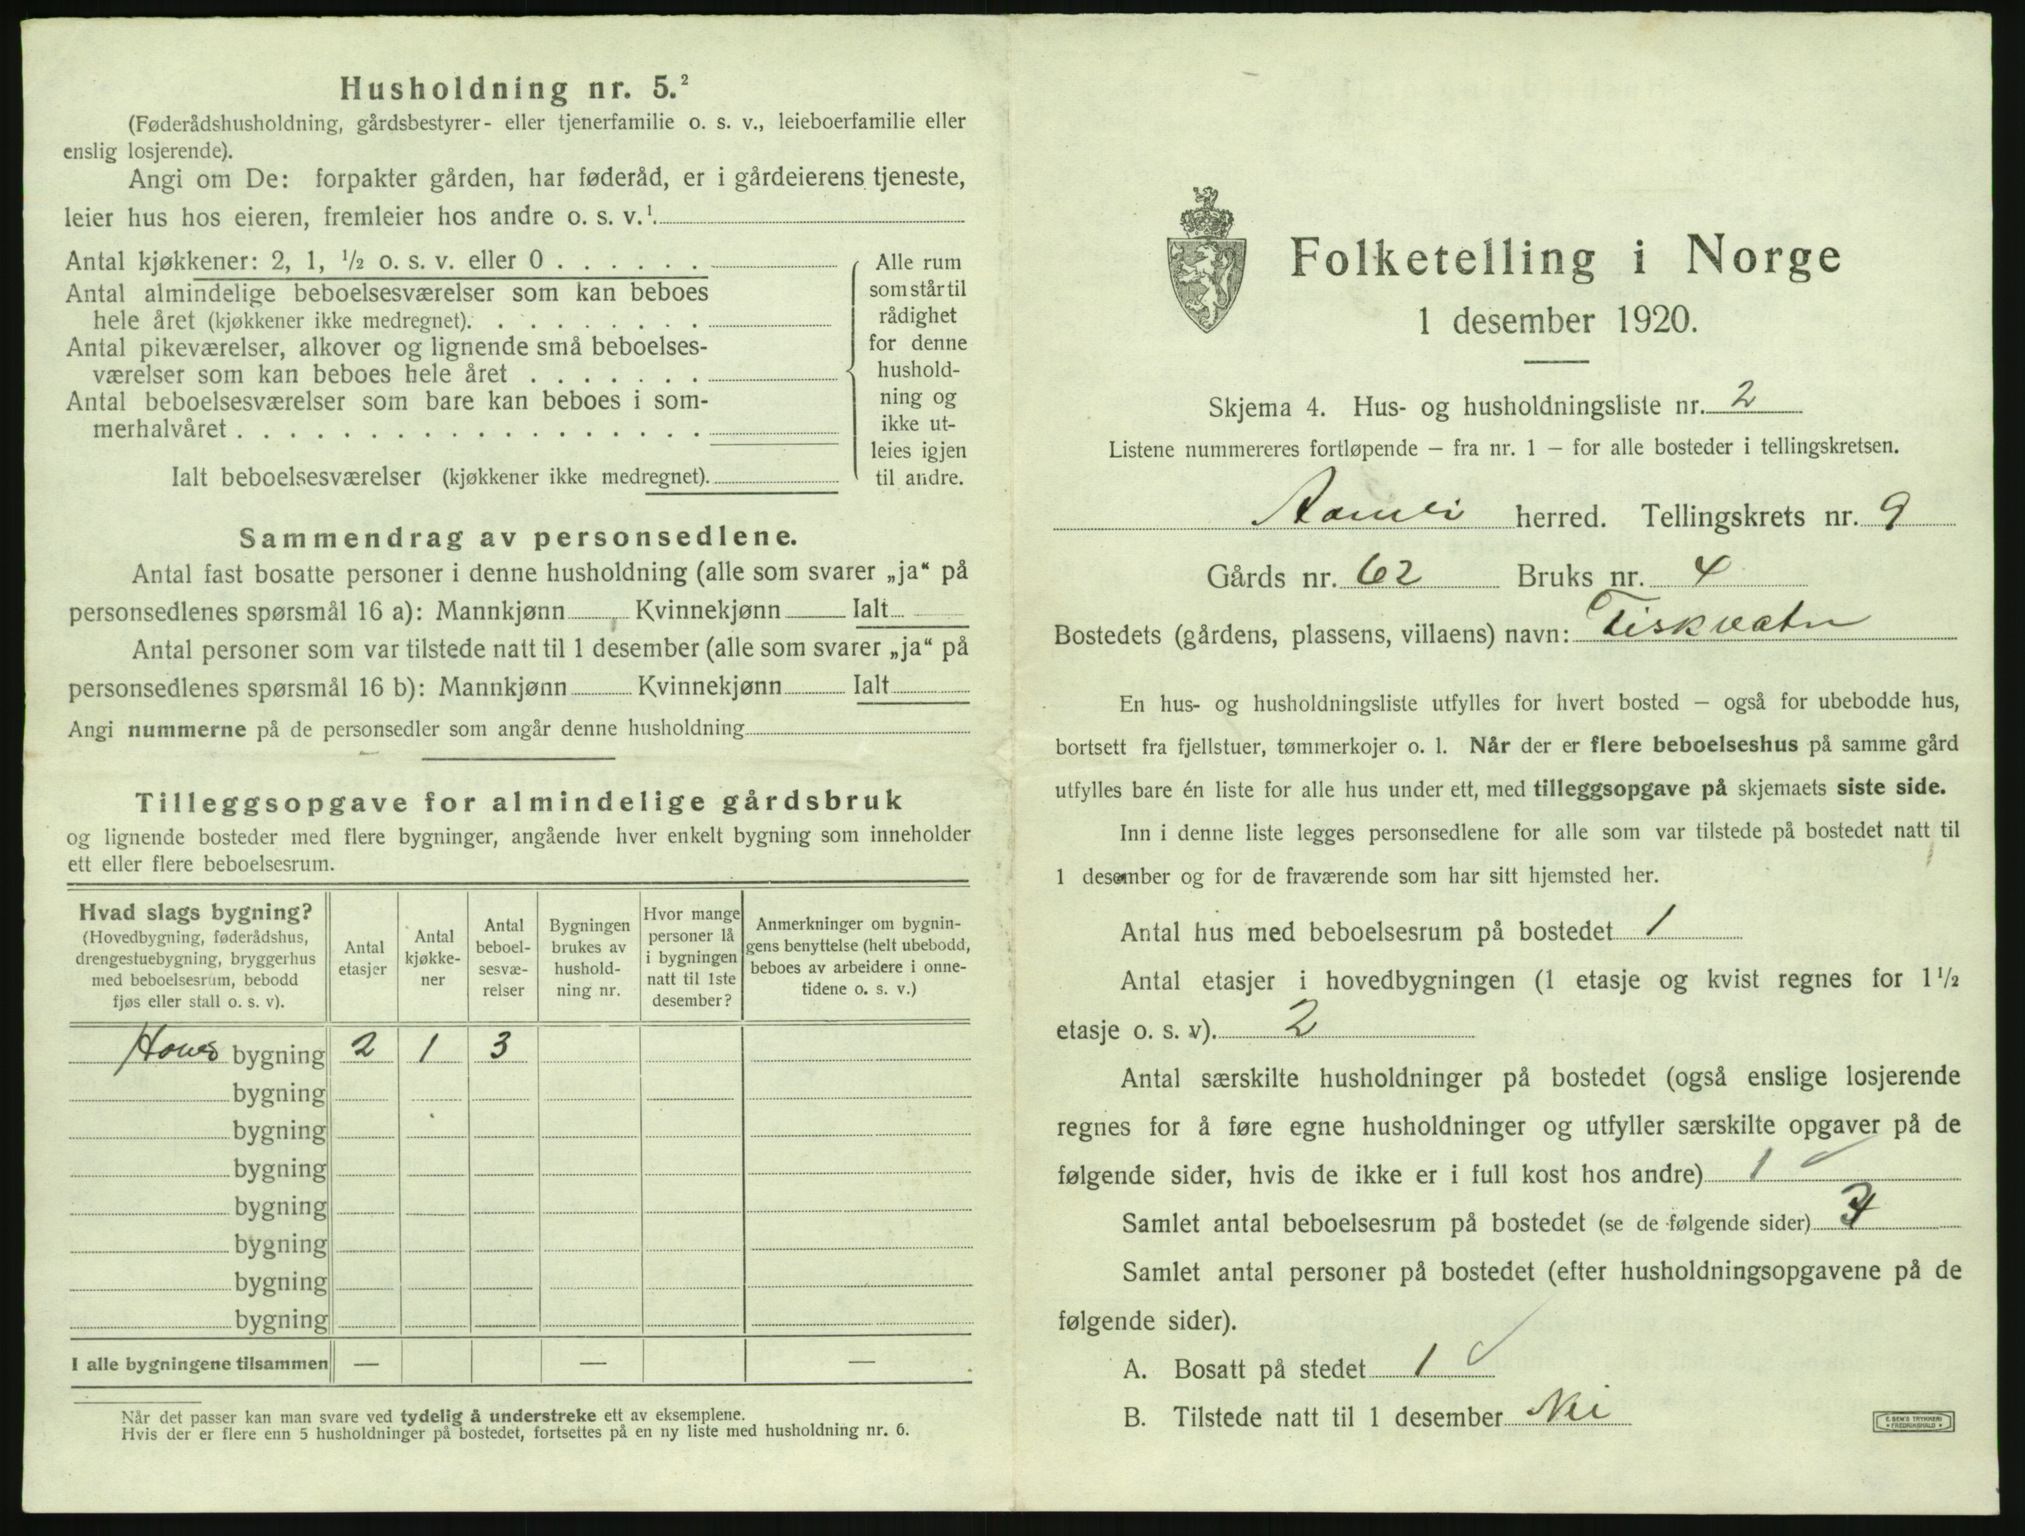 Husholdning nr. 5.²
(Føderådshusholdning, gårdsbestyrer- eller tjenerfamilie o. s. v., leieboerfamilie eller
enslig losjerende).
Angi om De: forpakter gården, har føderåd, er i gårdeierens tjeneste,
leier hus hos eieren, fremleier hos andre o. s. v.¹
Antal kjøkkener: 2, 1, ½ o. s. v. eller 0 . . . . . .
Antal almindelige beboelsesværelser som kan beboes
hele året (kjøkkener ikke medregnet). . . . . . . . .
Antal pikeværelser, alkover og lignende små beboelses-
værelser som kan beboes hele året . . . . . . .
Antal beboelsesværelser som bare kan beboes i som-
merhalvåret . . . . . . . . . . . . . . . . . .
Ialt beboelsesværelser (kjøkkener ikke medregnet).
Alle rum
som står til
rådighet
for denne
hushold-
ning og
ikke ut-
leies igjen
til andre.
Sammendrag av personsedlene.
Antal fast bosatte personer i denne husholdning (alle som svarer „ja“ på
personsedlenes spørsmål 16 a): Mannkjønn Kvinnekjønn Ialt
Antal personer som var tilstede natt til 1 desember (alle som svarer „ja“ på
personsedlenes spørsmål 16 b): Mannkjønn Kvinnekjønn Ialt
Angi nummerne på de personsedler som angår denne husholdning
Tilleggsopgave for almindelige gårdsbruk
og lignende bosteder med flere bygninger, angående hver enkelt bygning som inneholder
ett eller flere beboelsesrum.
Hvad slags bygning?
(Hovedbygning, føderådshus,
drengestuebygning, bryggerhus
med beboelsesrum, bebodd
fjøs eller stall o. s. v).
Antal
etasjer
Antal
kjøkke-
ner
Antal
beboel-
sesvæ-
relser
Bygningen
brukes av
hushold-
ning nr.
Hvor mange
personer lå
i bygningen
natt til 1ste
desember?
Anmerkninger om bygnin-
gens benyttelse (helt ubebodd,
beboes av arbeidere i onne-
tidene o. s. v.)
bygning 2 1 3
bygning
bygning
bygning
bygning
bygning
bygning
bygning
I alle bygningene tilsammen — — —
Når det passer kan man svare ved tydelig å understreke ett av eksemplene.
Hvis der er flere enn 5 husholdninger på bostedet, fortsettes på en ny liste med husholdning nr. 6.
Folketelling i Norge
1 desember 1920.
Skjema 4. Hus- og husholdningsliste nr. 2
Listene nummereres fortløpende – fra nr. 1 – for alle bosteder i tellingskretsen.
Aamli herred. Tellingskrets nr. 9
Gårds nr. 62 Bruks nr. 4
Bostedets (gårdens, plassens, villaens) navn: Fiskvatn
En hus- og husholdningsliste utfylles for hvert bosted – også for ubebodde hus,
bortsett fra fjellstuer, tømmerkojer o. l. Når der er flere beboelseshus på samme gård
utfylles bare én liste for alle hus under ett, med tilleggsopgave på skjemaets siste side.
Inn i denne liste legges personsedlene for alle som var tilstede på bostedet natt til
1 desember og for de fraværende som har sitt hjemsted her.
Antal hus med beboelsesrum på bostedet 1
Antal etasjer i hovedbygningen (1 etasje og kvist regnes for 1½
etasje o. s. v). 2
Antal særskilte husholdninger på bostedet (også enslige losjerende
regnes for å føre egne husholdninger og utfyller særskilte opgaver på de
følgende sider, hvis de ikke er i full kost hos andre) 1
Samlet antal beboelsesrum på bostedet (se de følgende sider)
Samlet antal personer på bostedet (efter husholdningsopgavene på de
følgende sider).
A. Bosatt på stedet 1
B. Tilstede natt til 1 desember Nei
E. SEM'S TRYKKERI
FREDRIKSHALD